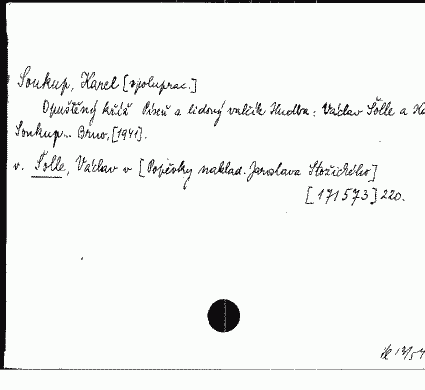 Soukup, Karel [spoluprac.]
Opuštěný kříž Píseň a lidový valčík Hudba: Václav Šolle a Ka
Soukup... Brno, [1941].
v. Šolle, Václav v [Popěvky naklad. Jaroslava Stožického]
[171573] 220.